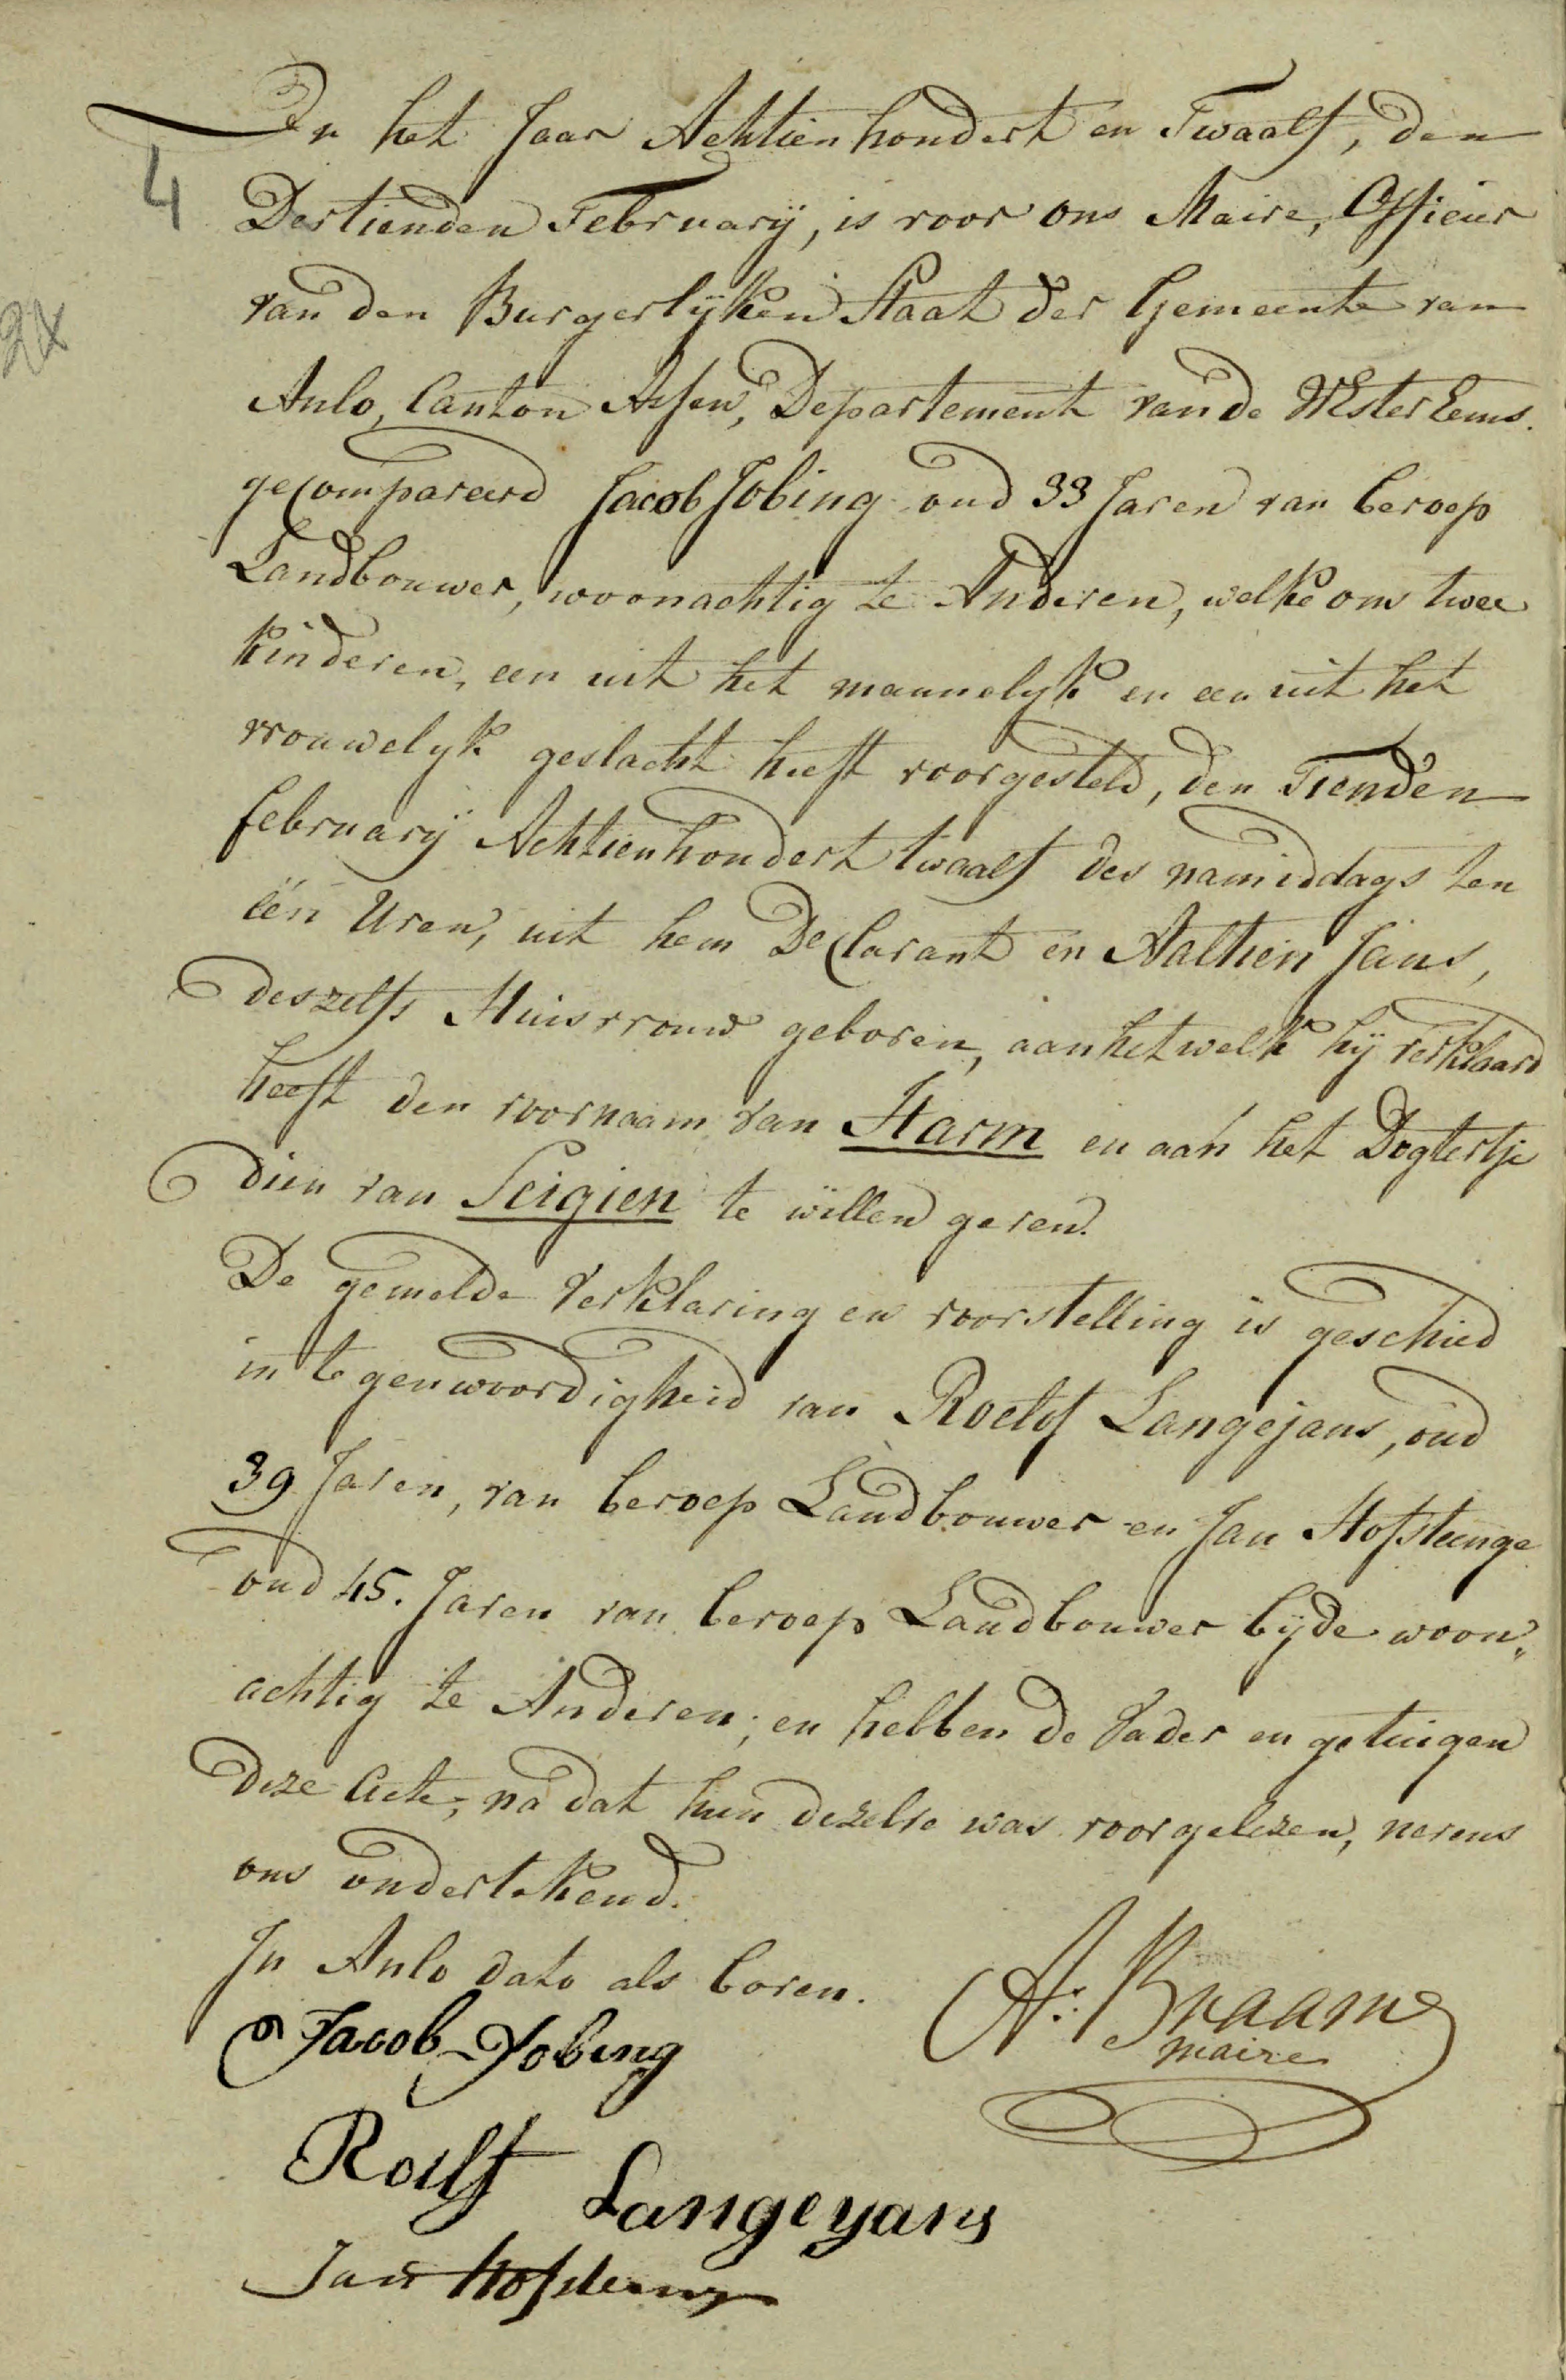 In het Jaar Achtienhondert en Twaalf, den
4
Dertienden February, is voor ons Maire, Officier
van den Burgerlyken Staat der Gemeente van
2x
Anlo, Canton Assen, Departement van de WesterEems.
gecompareerd Jacob Jobing oud 33 Jaren van beroep
Landbouwer, woonachtig te Anderen, welke ons twee
kinderen, een uit het mannelyk en een uit het
vrouwelyk geslacht heeft voorgesteld, den Tienden
february Achtienhondert twaalf des namiddags ten
één Uren, uit hem Declarant en Aaltien Jans,
deszelfs Huisvrouw geboren, aan het welk hij verklaard
heeft den voornaam van Harm en aan het Dogtertje
dien van Seigien te willen geven.
De gemelde Verklaring en voorstelling is geschied
in tegenwoordigheid van Roelof Langejans, oud
39 Jaren, van beroep Landbouwer en Jan Hofsteenge
oud 45. Jaren van beroep Landbouwer byde woon„
achtig te Anderen; en hebben de Vader en getuigen
deze Acte, na dat hun dezelve was voorgelezen, nevens
ons ondertekend.
In Anlo dato als boven.
A: Braams
maire
Jacob Jobing
Roelf Langeyans
Jan Hofsteenge